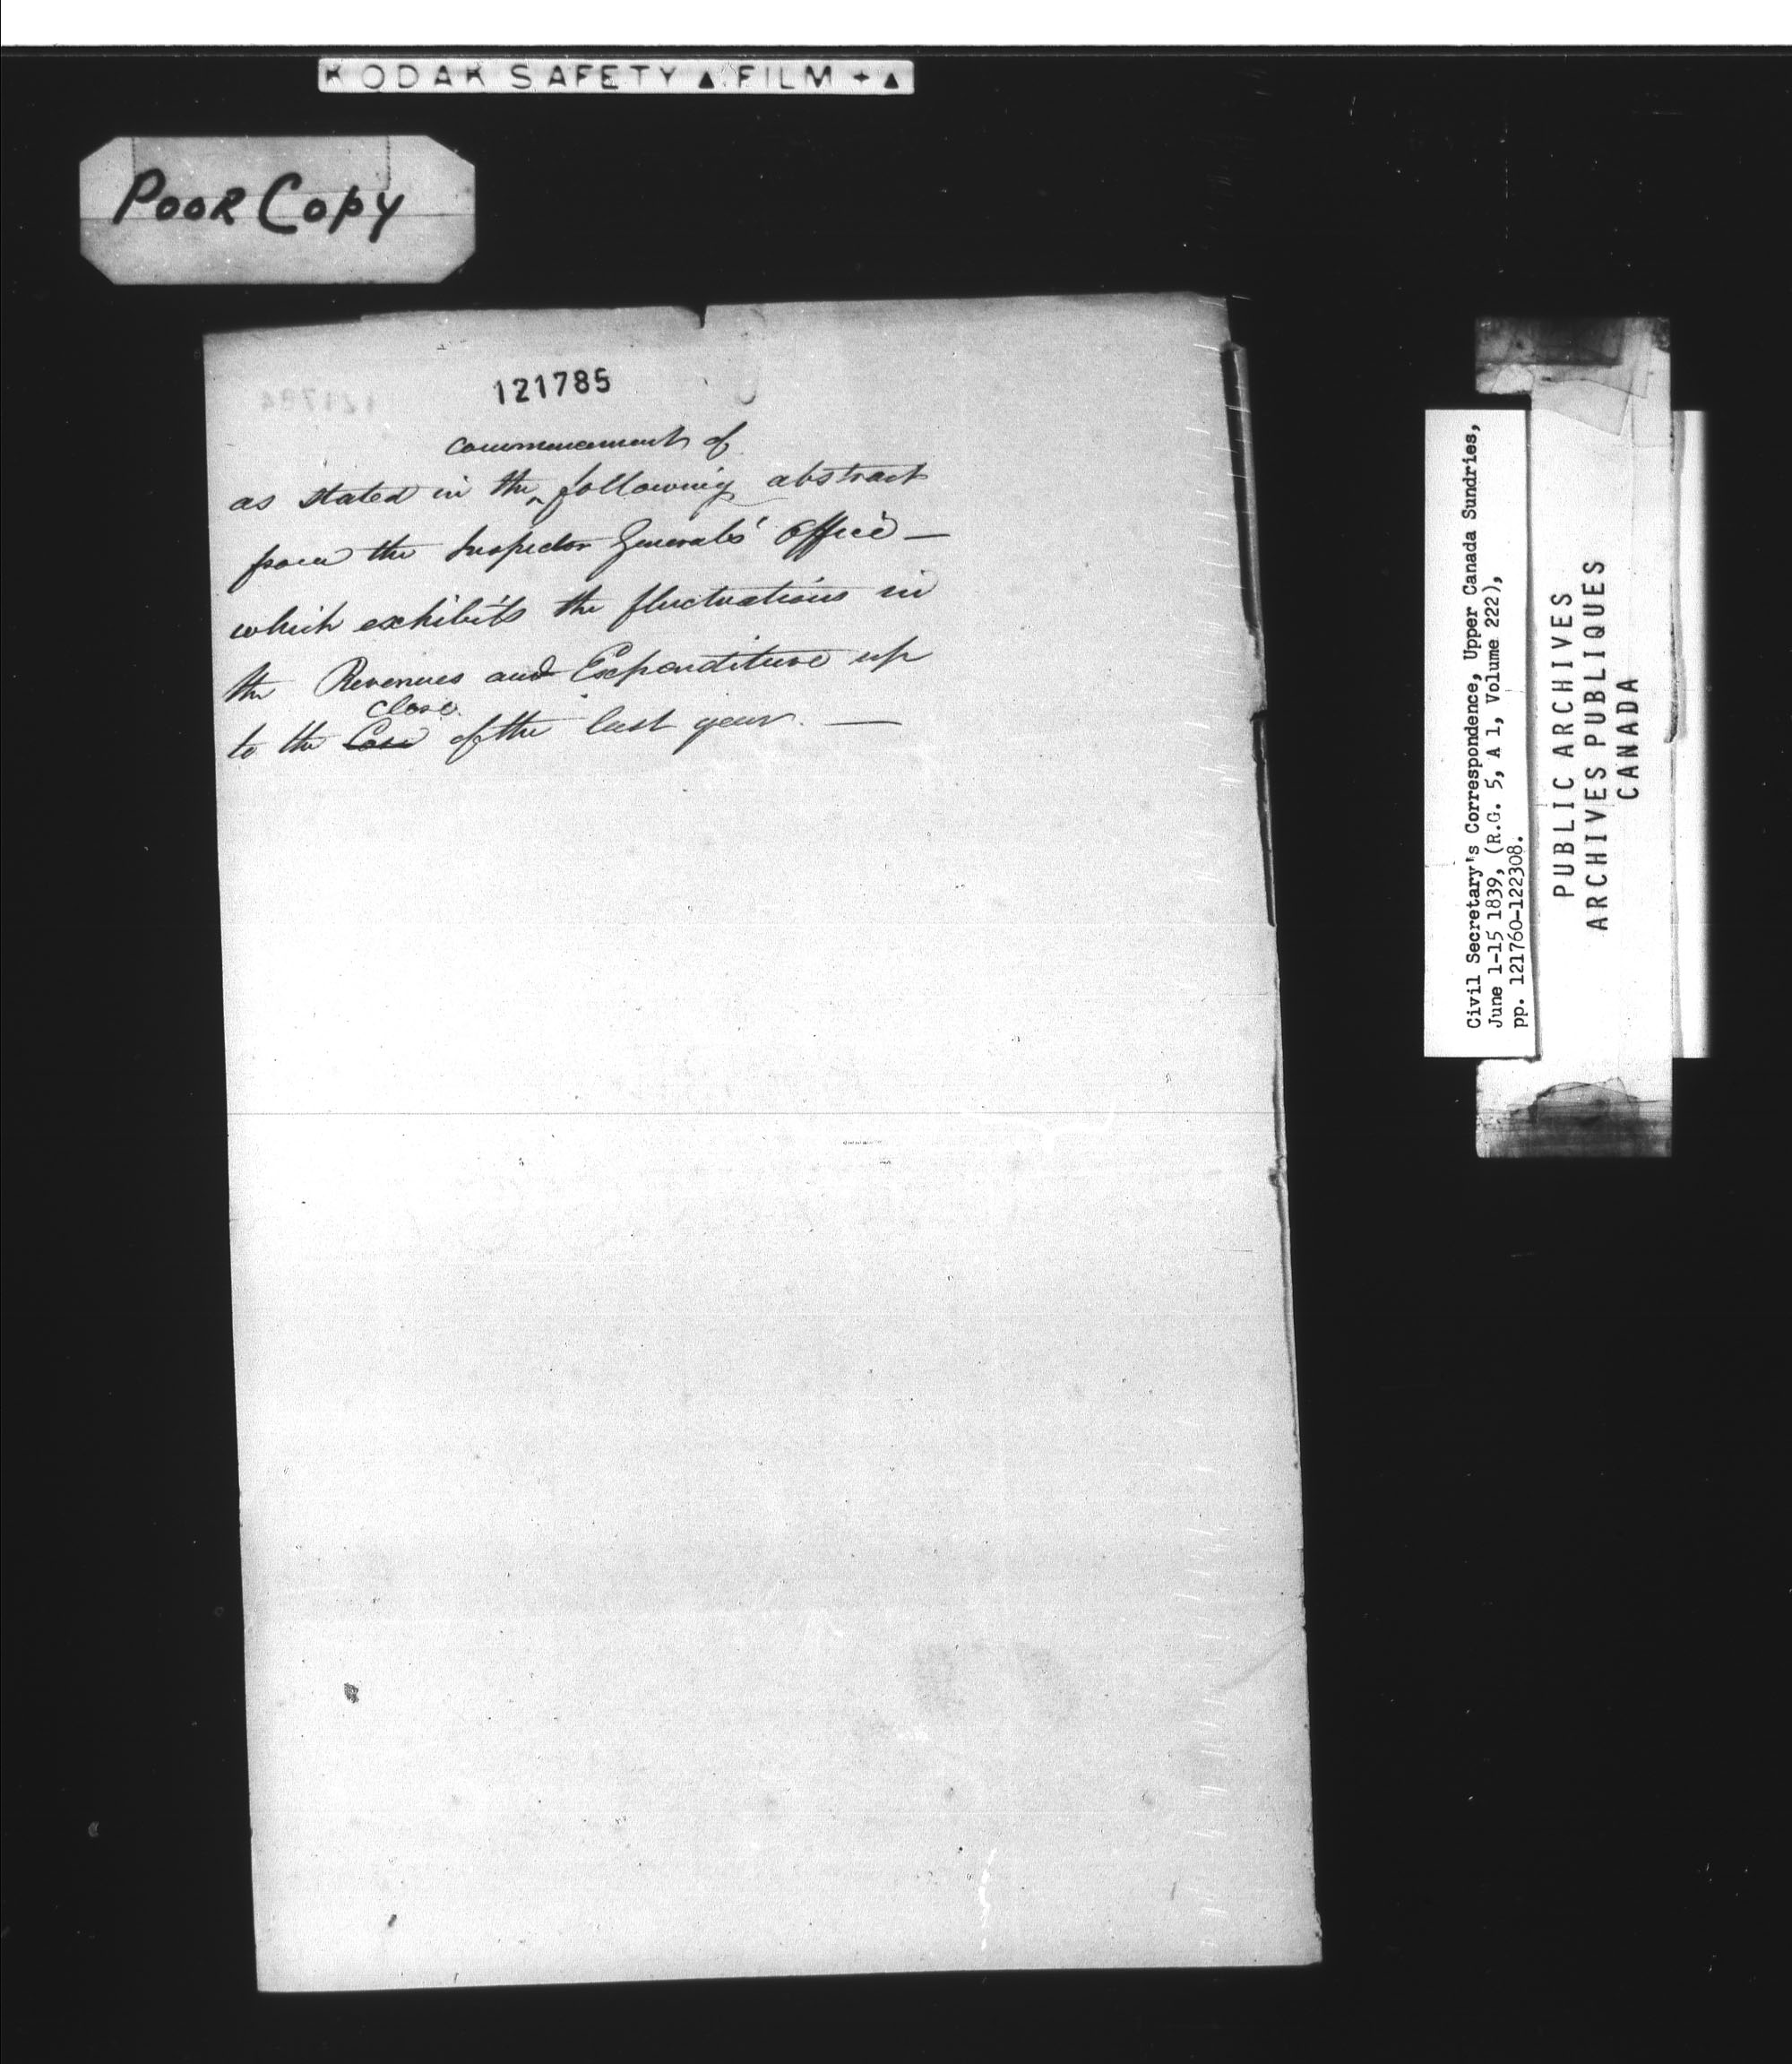 KODAK SAFETY ▲ FILM + ▲
Poor Copy
121785
commencement of
as stated in the ^ following abstract
from the Inspector Generals' Office —
which exhibits the fluctuations in
the Revenues and Expenditure up
close
to the of the last year. —
Civil Secretary's Correspondence, Upper Canada Sundries,
June 1-15 1839, (R.G. 5, A 1, Volume 222),
pp. 121760-122308.
PUBLIC ARCHIVES
ARCHIVES PUBLIQUES
CANADA